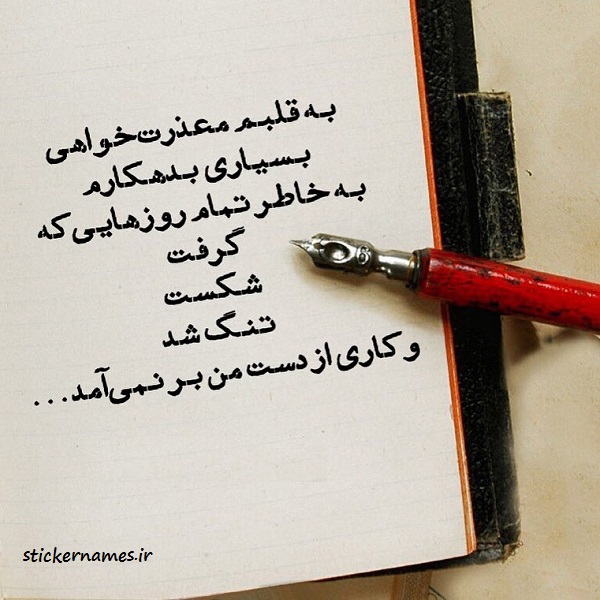 به قلبم معذرت‌خواهی
بسیاری بدهکارم
به خاطر تمام روزهایی که
گرفت
شکست
تنگ شد
و کاری از دست من بر نمی‌آمد...
stickernames.ir